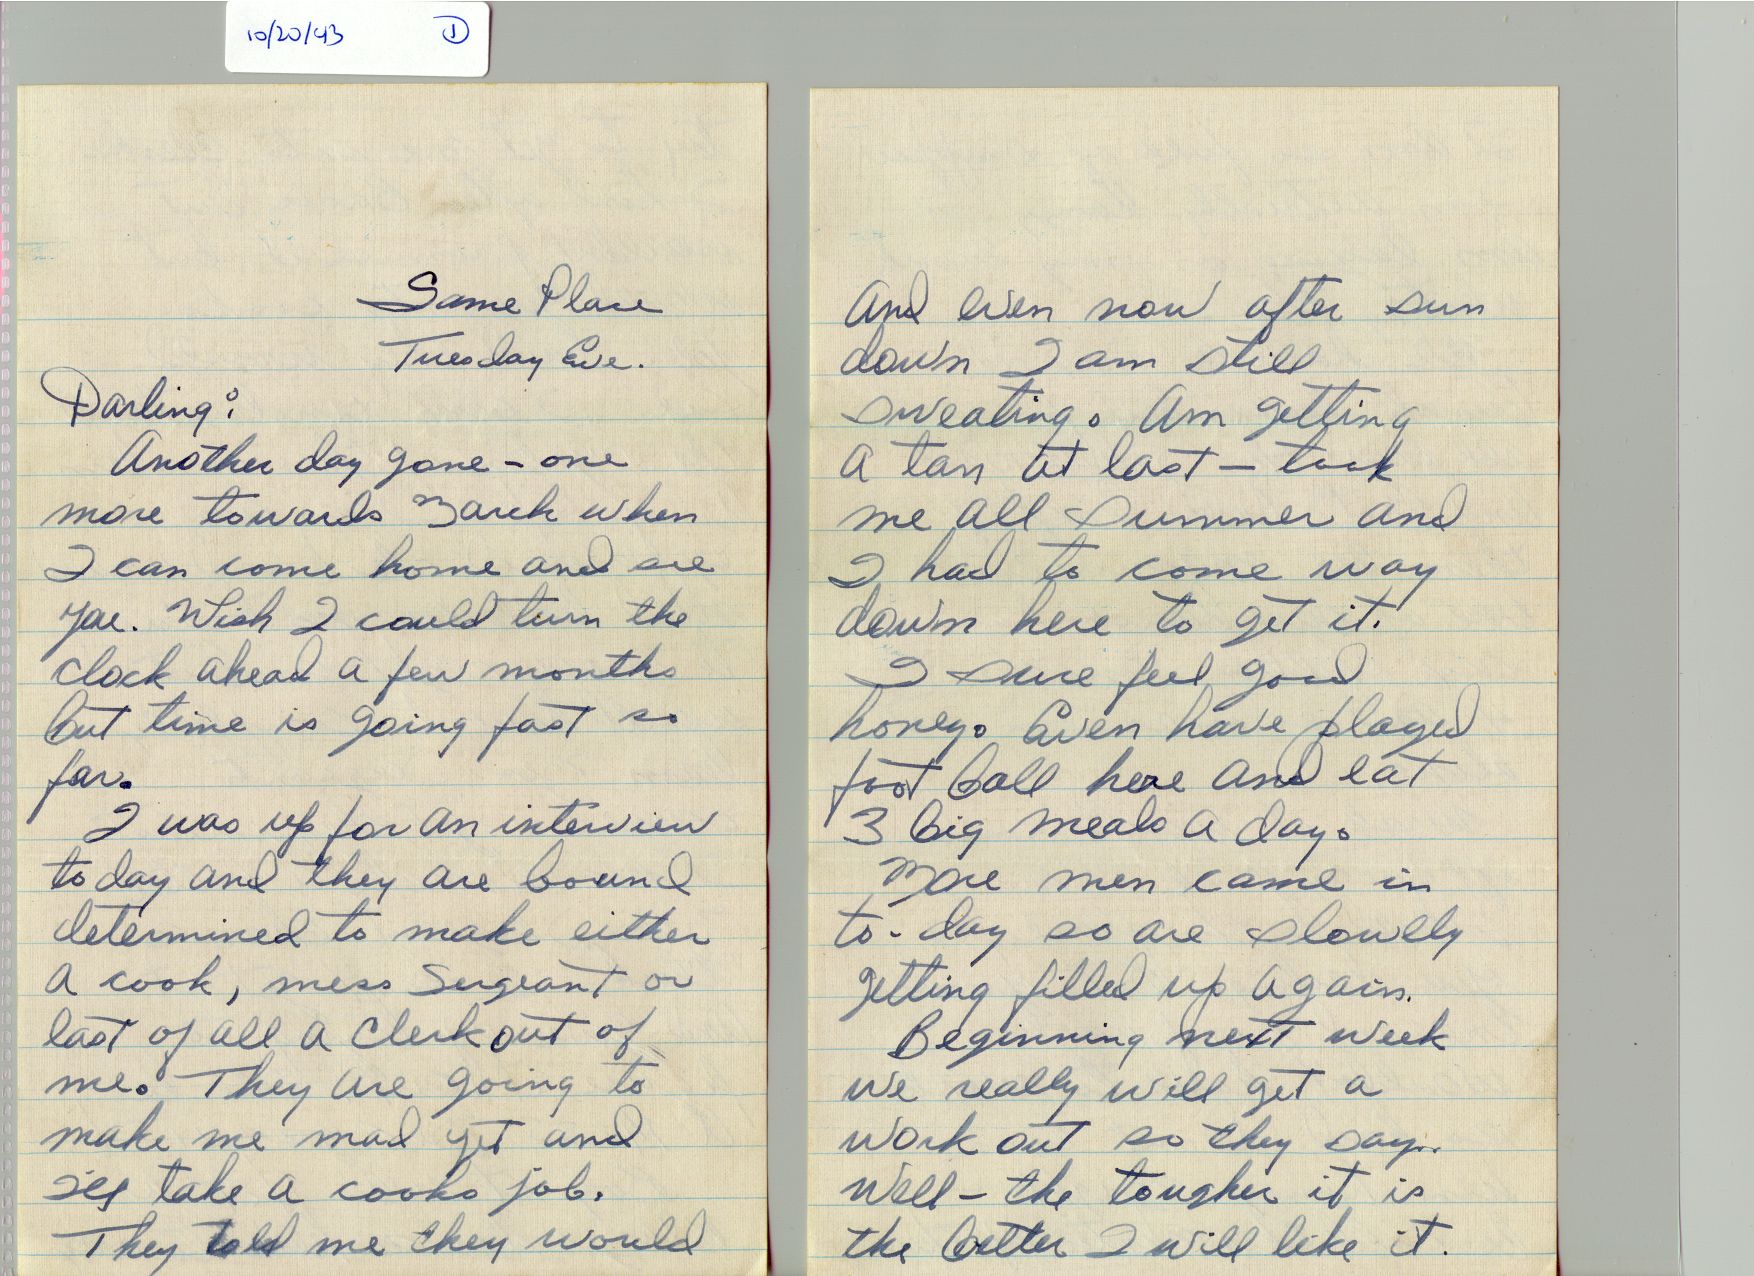 10/20/43 1
Same Place
Tuesday Eve.
Darling:
Another day gone - one
more towards March when
I can come home and see
you. Wish I could turn the
clock ahead a few months
but time is going fast so
far.
I was up for an interview
today and they are bound
determined to make either
a cook, mess Sergeant or
last of all a Clerk out of
me. They are going to
make me mad yet and
I'll take a cooks job.
They told me they would
And even now after sun
down I am still
sweating. Am getting
a tan at last - took
me all summer and
I had to come way
down here to get it.
I sure feel good
honey. Even have played
foot ball here and eat
3 big meals a day.
More men came in
to-day so are slowly
getting filled up again.
Beginning next week
we really will get a
work out so they say.
Well - the tougher it is
the better I will like it.